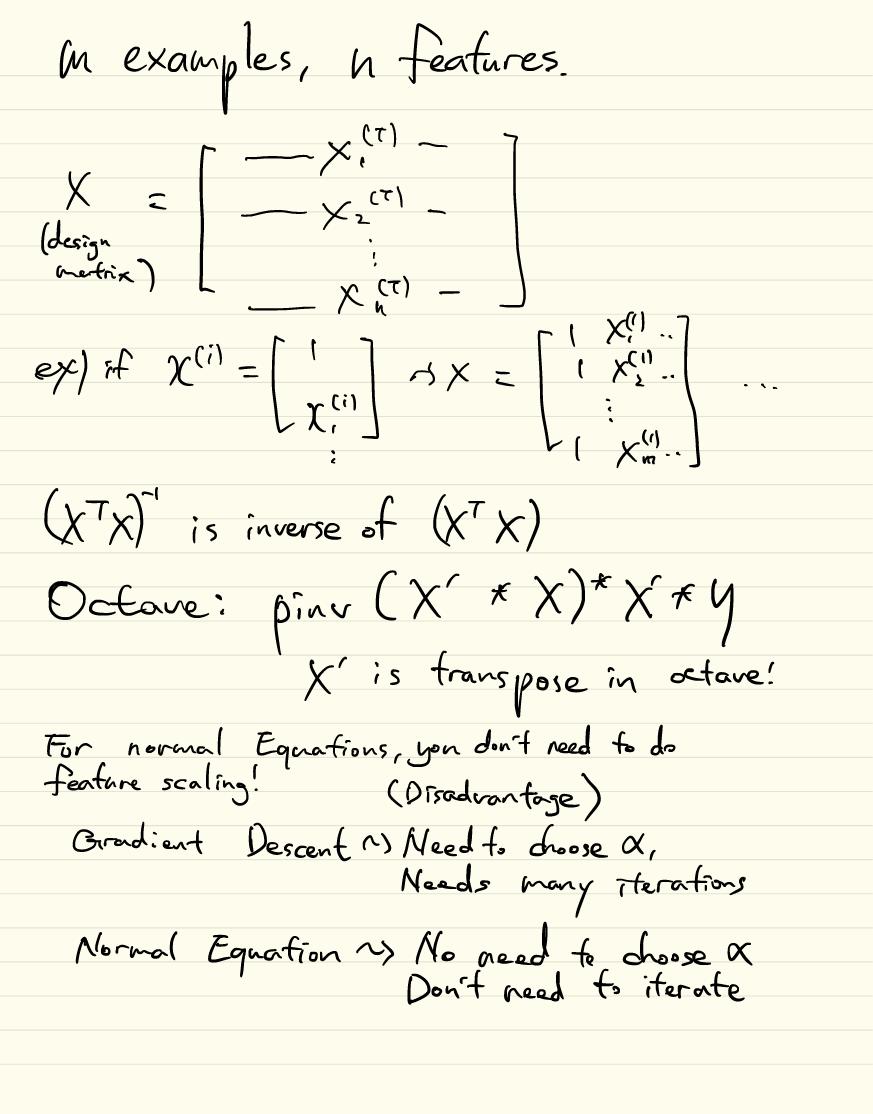 m examples, n features.
X (design matrix) = [ — x₁^(T) —
— x₂^(T) —
⋮
— xₙ^(T) — ]
ex) if x^(i) = [ 1
x₁^(i)
⋮ ] ⇝ X = [ 1 x₁^(1) ..
1 x₂^(1) ..
⋮
1 xₘ^(1) .. ] ...
(XᵀX)⁻¹ is inverse of (XᵀX)
Octave: pinv (X' * X)* X' * y
X' is transpose in octave!
For normal Equations, you don't need to do
feature scaling! (Disadvantage)
Gradient Descent ~> Need to choose α,
Needs many iterations
Normal Equation ~> No need to choose α
Don't need to iterate